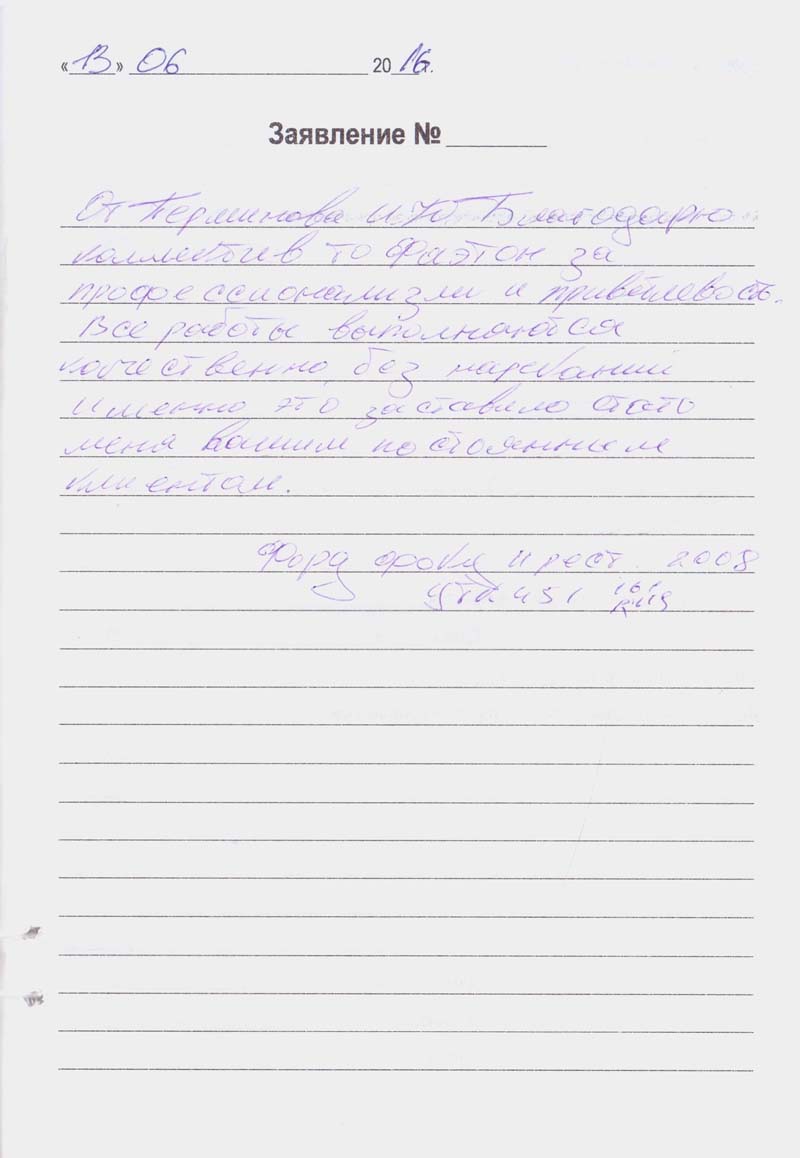 «13» 06 2016г.
Заявление №
От Перминова И.Ю. Благодарю
коллектив то Фаэтон за
профессионализм и приветлевость.
Все работы выполняются
качественно, без нареканий
именно это заставило стать
меня вашим постоянным
клиентом.
Форд фокус II рест. 2008
451 161
RUS